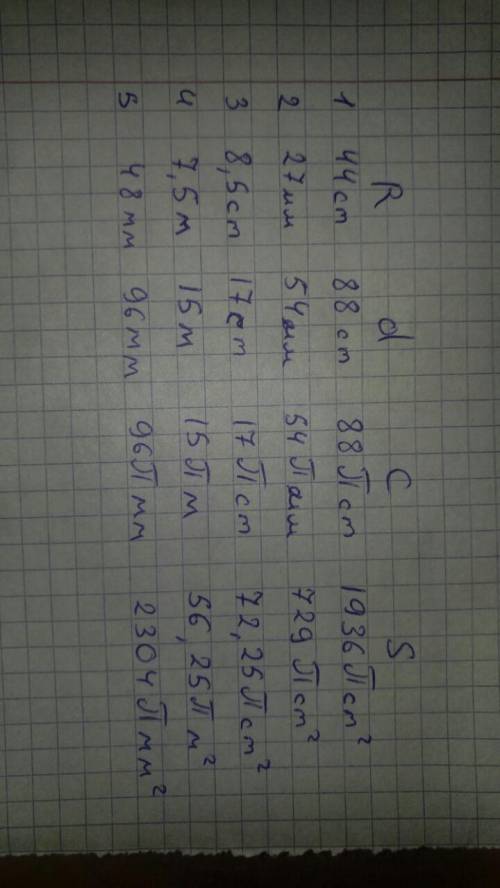 R d C S
1 44 cm 88 cm 88 П cm 1936 П cm²
2 27 мм 54 мм 54 П мм 729 П cm²
3 8,5 cm 17 cm 17 П cm 72,25 П cm²
4 7,5 м 15 м 15 П м 56,25 П м²
5 48 мм 96 мм 96 П мм 2304 П мм²